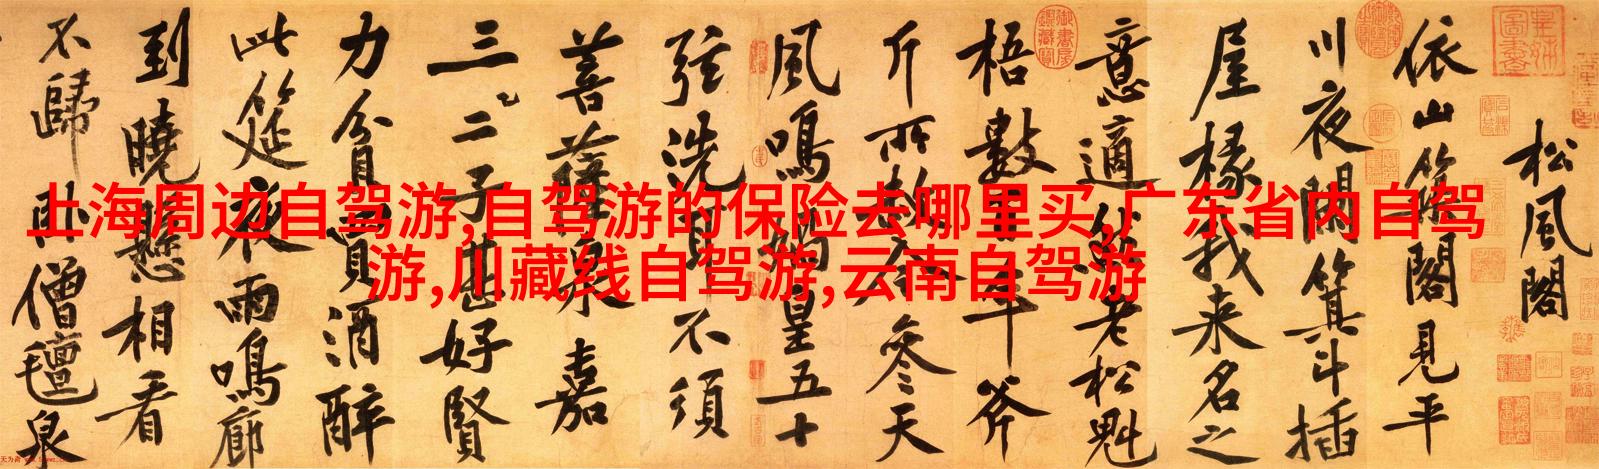 上海周边自驾游,自驾游的保险去哪里买,广东省内自驾
游,川藏线自驾游,云南自驾游
松風閣
依山築閣見平
川夜闌箕斗插
屋椽我来名之
意適然老松魁
梧數百年斧
斤所赦今参天
風鳴媧皇五十
弦洗耳不須
菩薩泉嘉
三二子甚好賢
力貧買酒醉
此筵夜雨鳴廊
到曉懸相看
不歸卧僧氊泉